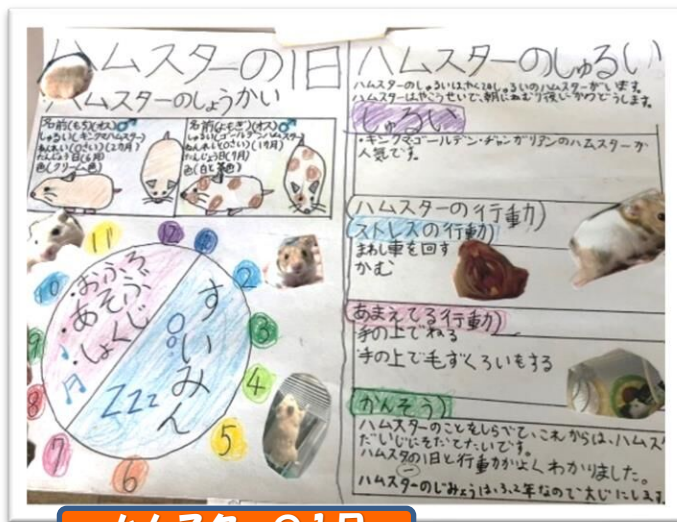 ハムスターの1日
ハムスターのしょうかい
名前(もち)(オス)♂
しゅるい(キンクマハムスター)
ねんれい(0さい)(2カ月)
たんじょう日(6月)
色(クリーム色)
名前(よもぎ)(オス)♂
しゅるい(ゴールデンハムスター)
ねんれい(0さい)(1カ月)
たんじょう日(7月)
色(白と茶色)
11
12
2
3
4
5
6
7
8
9
10
・おふろ
・あそぶ
・しょくじ
すいみん
ZZZ
ハムスターのしゅるい
ハムスターのしゅるいはやく24しゅるいのハムスターがいます。
ハムスターはやこうせいで、朝にねむり夜にかつどうします。
しゅるい
・キンクマ・ゴールデン・ジャンガリアンのハムスターが
人気です。
(ハムスターの行動)
ストレスの行動)
まわし車を回す
かむ
あまえてる行動)
手の上でねる
手の上で毛ずくろいもする
かんそう)
ハムスターのことをしらべて、これからは、ハムス
だいじにそだてたいです。
ハムスターの1日と行動がよくわかりました。
ハムスターのじみょうは、2年なので大じにします。
ハムスターの1日